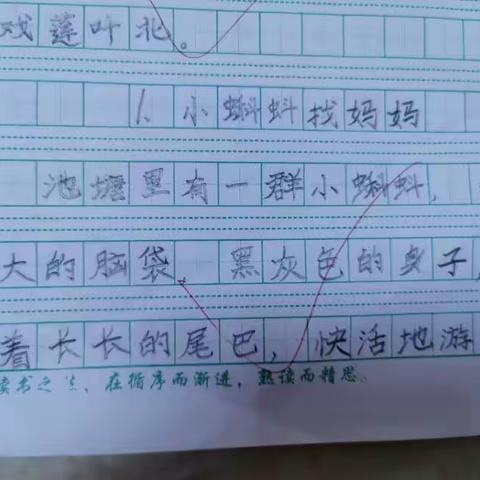 戏莲叶北。
1、小蝌蚪找妈妈
池塘里有一群小蝌蚪，
大的脑袋 黑灰色的身子，
着长长的尾巴，快活地游
读书之法，在循序而渐进，熟读而精思。